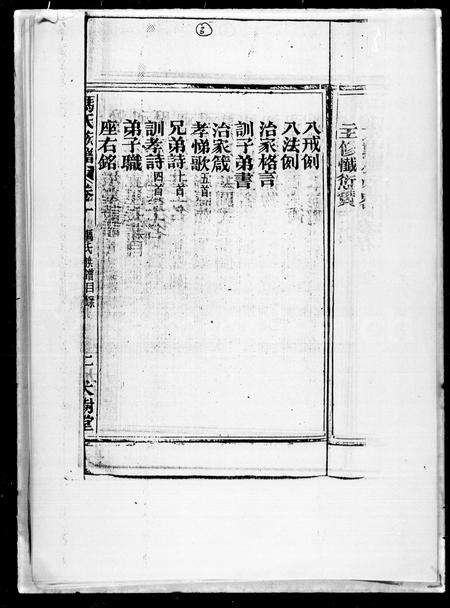 八戒刻
八法刻
治家格言
訓子弟書
治家箴
孝悌歌五首
兄弟詩廿首
訓孝詩四首
弟子職
座右銘
馮氏族譜圖卷一 馮氏族譜目錄 二 大樹堂